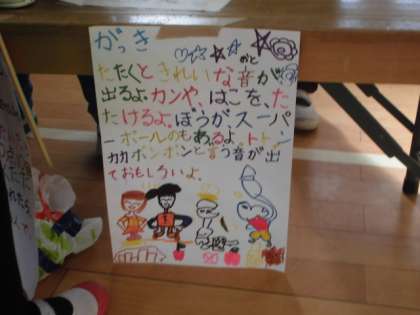 がっき
たたくときれいな音が
おと
出るよ。カンや、はこを、た
たけるよ。ぼうがスーパ
ーボールのもあるよ。トト、
カカボンボンと言う音が出
ておもしろいよ。